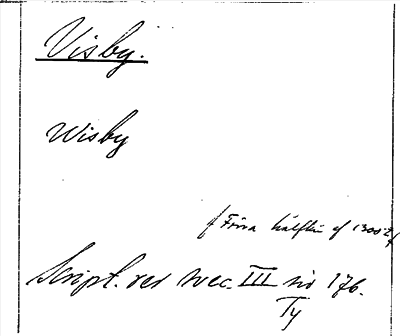 Visby.
Wisby
(Förra hälften af 1300-t)
Script. rer svec. III sid 176.
Ty